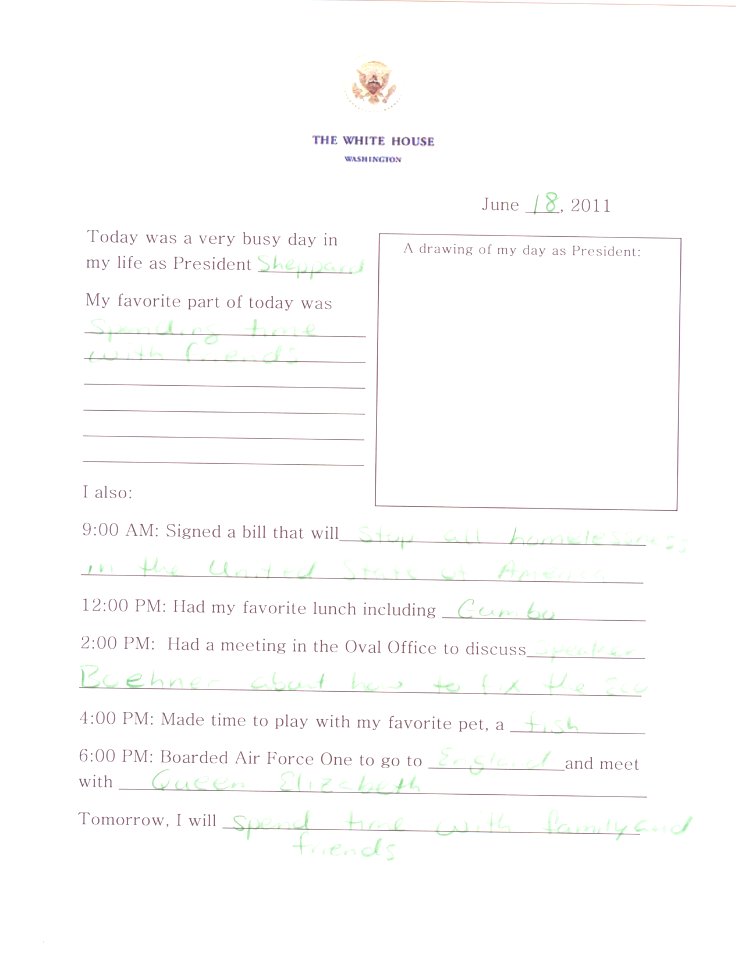 THE WHITE HOUSE
WASHINGTON
June 18, 2011
Today was a very busy day in
my life as President Sheppard
My favorite part of today was
Spending time
with friends
A drawing of my day as President:
I also:
9:00 AM: Signed a bill that will stop all homelessness
in the United States of America
12:00 PM: Had my favorite lunch including Gumbo
2:00 PM: Had a meeting in the Oval Office to discuss Speaker
Boehner about how to fix the
4:00 PM: Made time to play with my favorite pet, a fish
6:00 PM: Boarded Air Force One to go to England and meet
with Queen Elizabeth
Tomorrow, I will spend time with family and
friends